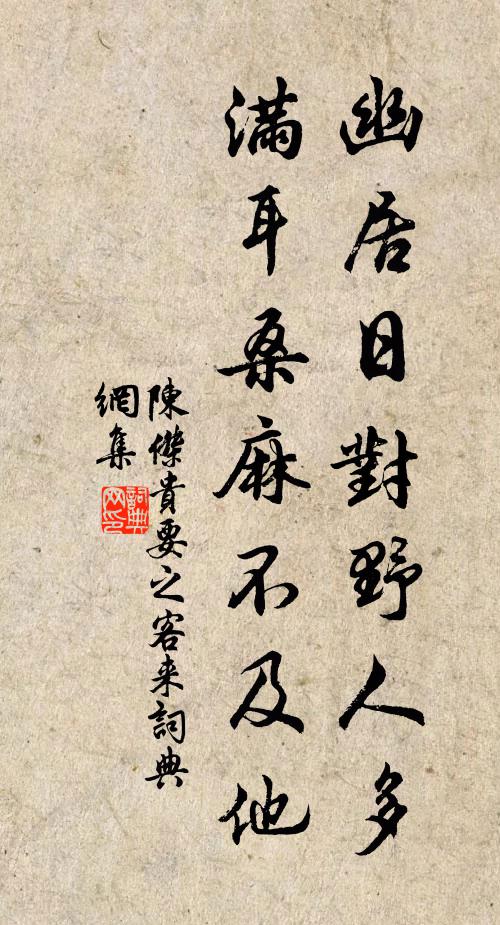 幽居日對野人多
滿耳桑麻不及他
陳傑貴要之客來詞典
網集
詞典
网印